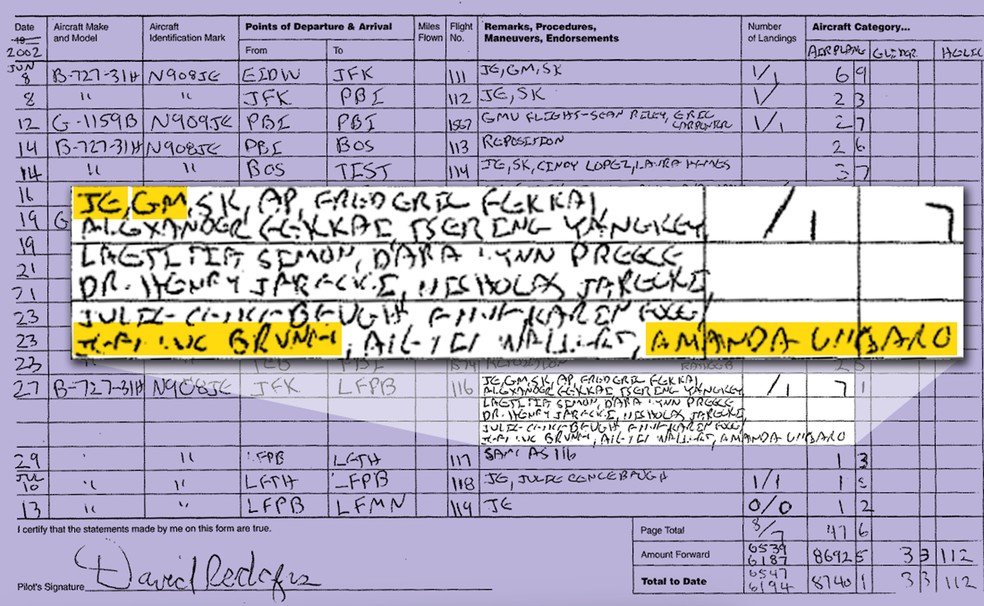 Date Aircraft Make and Model Aircraft Identification Mark Points of Departure & Arrival From To Miles Flown Flight No. Remarks, Procedures, Maneuvers, Endorsements Number of Landings Aircraft Category...
2002 AIRPLANE GLIDER HELIC
JUN
8 B-727-31H N908JE EIDW JFK 111 JE, GM, SK 1/1 6 9
8 " " JFK PBI 112 JE, SK 1/ 2 3
12 G-1159B N909JE PBI PBI 1567 GMU FLIGHT-SEAN RILEY, ERIC CARPENTER 1/1 2 7
14 B-727-31H N908JE PBI BOS 113 REPOSITION 2 6
14 " " BOS TEST 114 JE, SK, CINDY LOPEZ, LAURA 3 7
16
19 G
19
21
21
23
23
23
JE, GM, SK, AP, FREDERIC FEKKAI, /1 7
ALEXANDER FEKKAI, TSERING YANGKEY
LAETITIA SIMON, DARA LYNN PREECE
DR. HENRY JARECKI, NICHOLAS JARECKI,
JULIE
BRUNEL, AMANDA
27 B-727-31H N908JE JFK LFPB 116 JE, GM, SK, AP, FREDERIC FEKKAI, /1 7 1
ALEXANDER FEKKAI, TSERING YANGKEY
LAETITIA SIMON, DARA LYNN PREECE
DR. HENRY JARECKI, NICHOLAS JARECKI,
JULIE
BRUNEL, AMANDA
29 " " LFPB LFTH 117 SAME AS 116 1 3
JUL
10 " " LFTH LFPB 118 JE, JULIE 1/1 1
13 " " LFPB LFMN 119 JE 0/0 1 2
I certify that the statements made by me on this form are true.
Page Total 8/7 47 6
Amount Forward 6539 6187 8692 5 3 3 112
Total to Date 6547 6194 8740 1 3 3 112
Pilot's Signature David Rodgers